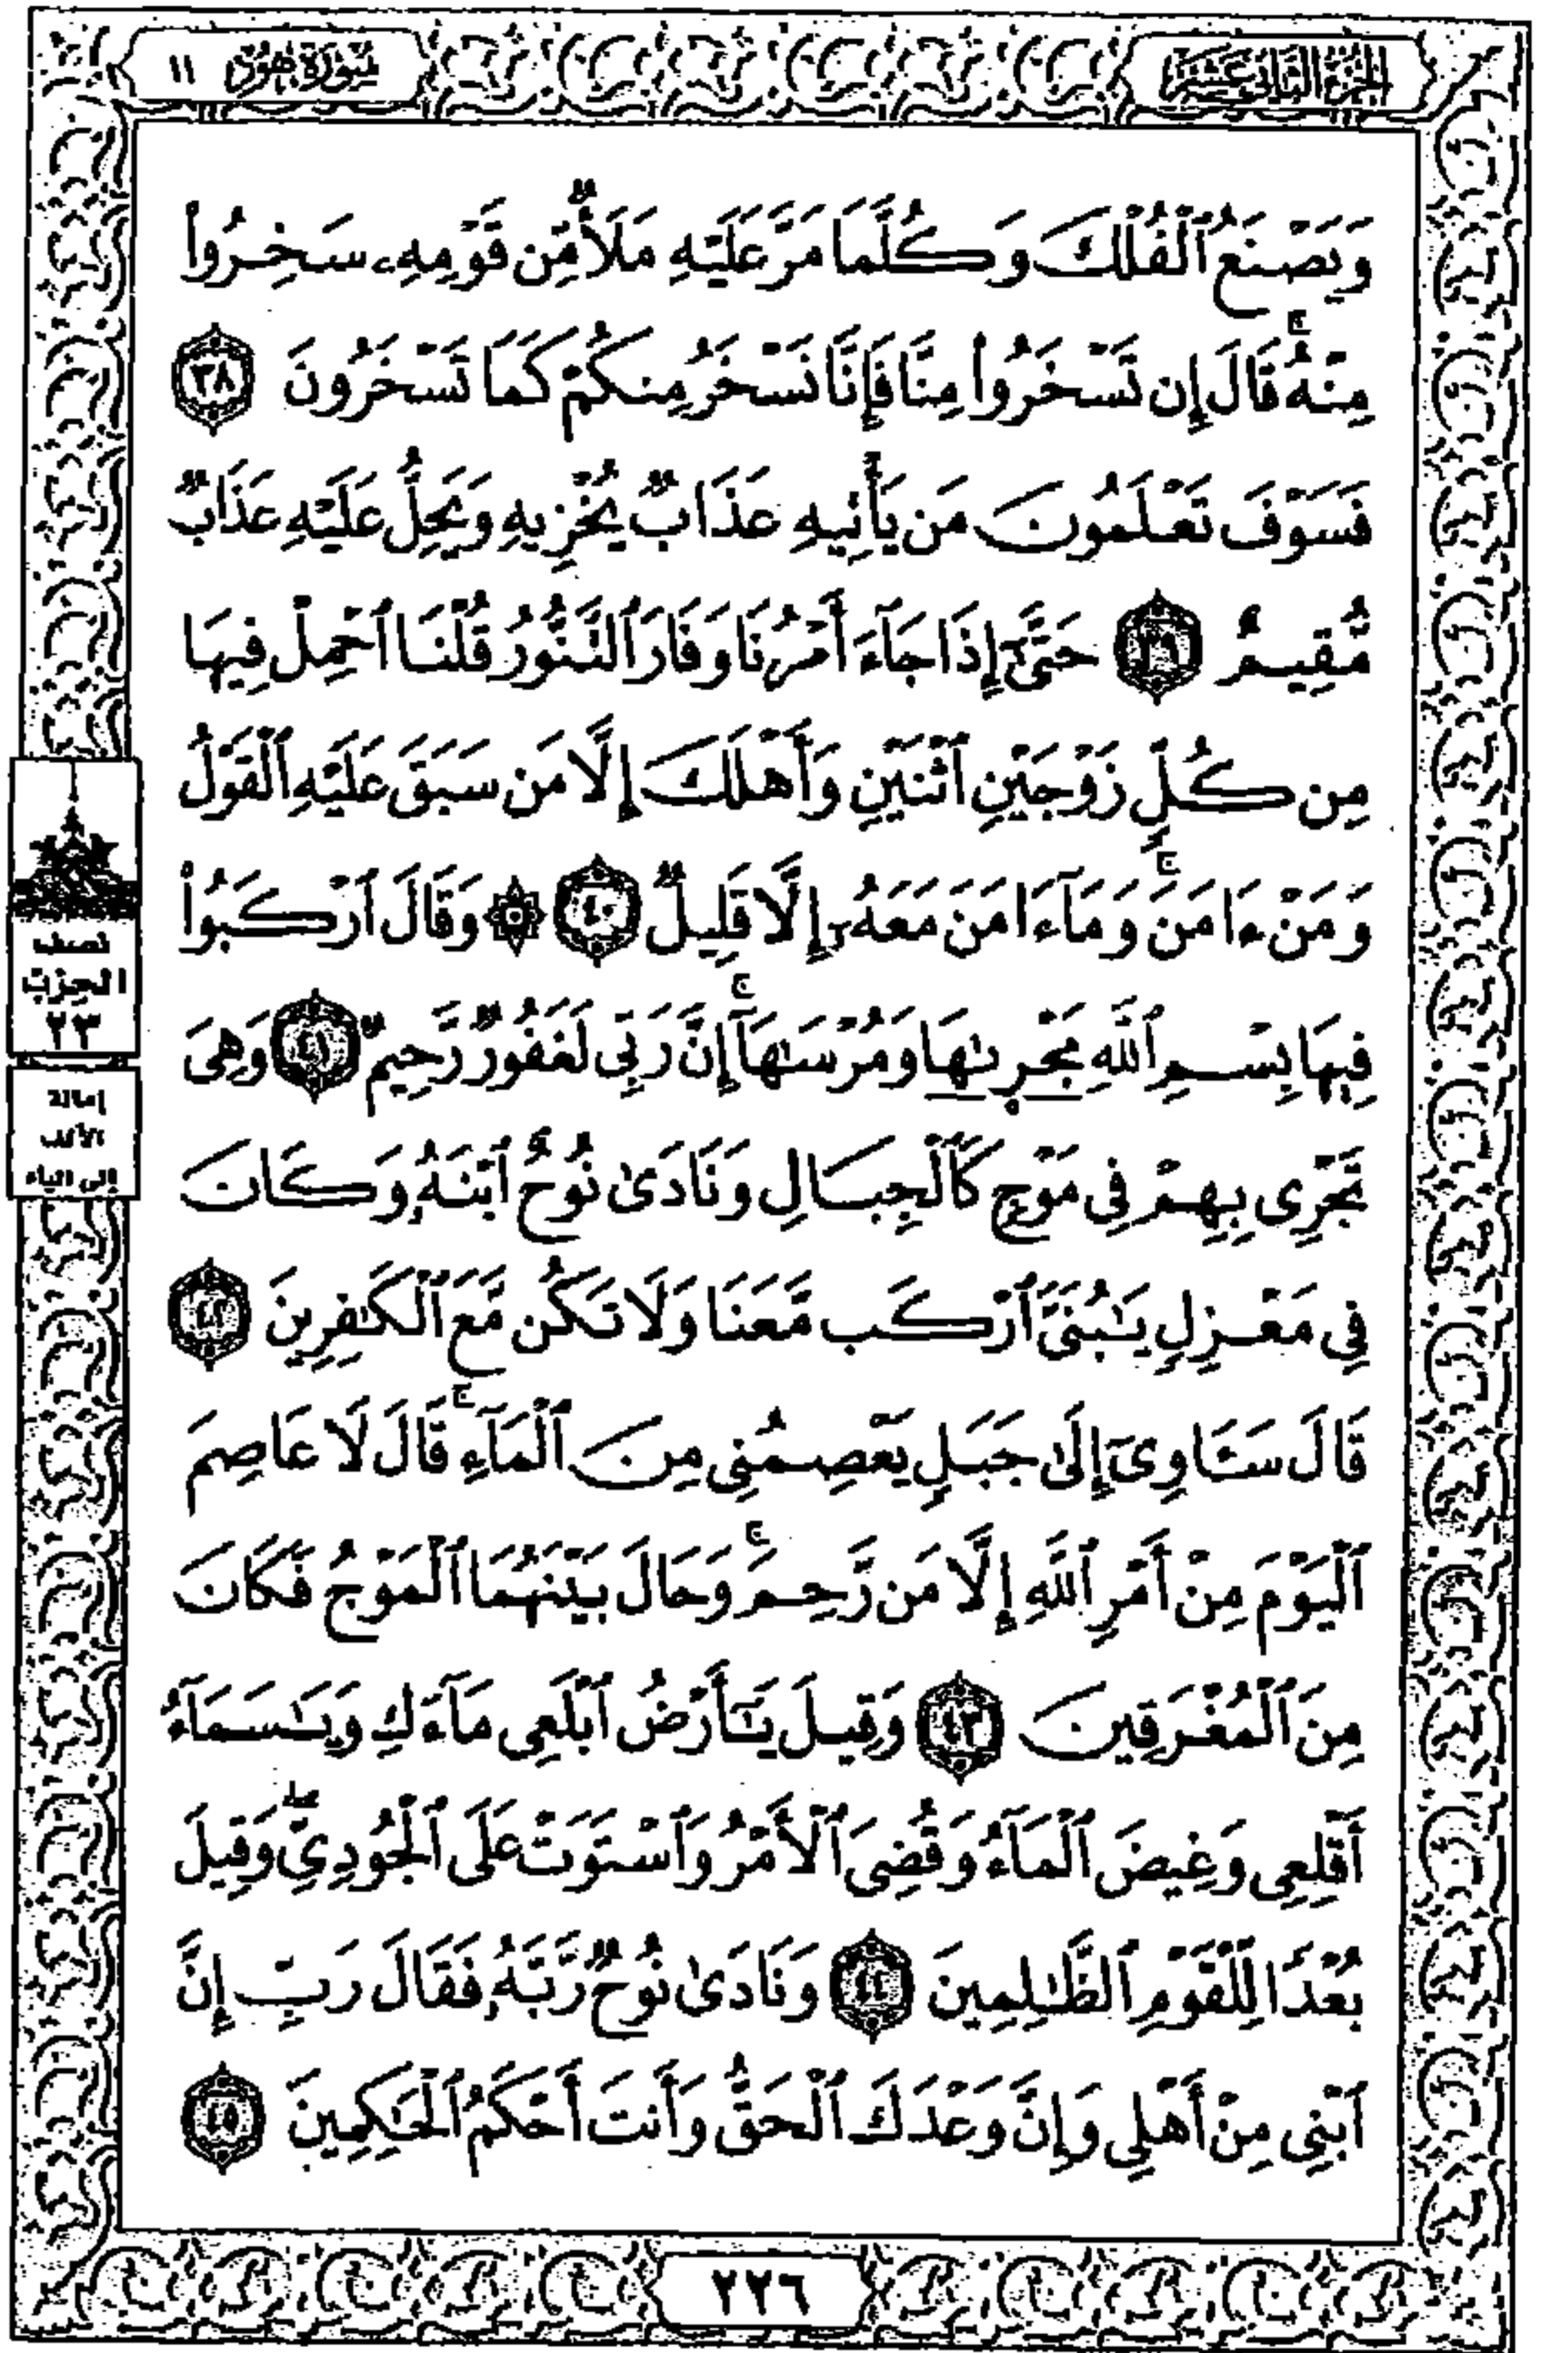 الجزء الثاني عشر
سورة هود ١١
وَيَصْنَعُ ٱلْفُلْكَ وَكُلَّمَا مَرَّ عَلَيْهِ مَلَأٌ مِّن قَوْمِهِۦ سَخِرُوا۟
مِنْهُ ۚ قَالَ إِن تَسْخَرُوا۟ مِنَّا فَإِنَّا نَسْخَرُ مِنكُمْ كَمَا تَسْخَرُونَ ٣٨
فَسَوْفَ تَعْلَمُونَ مَن يَأْتِيهِ عَذَابٌ يُخْزِيهِ وَيَحِلُّ عَلَيْهِ عَذَابٌ
مُّقِيمٌ ٣٩ حَتَّىٰٓ إِذَا جَآءَ أَمْرُنَا وَفَارَ ٱلتَّنُّورُ قُلْنَا ٱحْمِلْ فِيهَا
مِن كُلٍّ زَوْجَيْنِ ٱثْنَيْنِ وَأَهْلَكَ إِلَّا مَن سَبَقَ عَلَيْهِ ٱلْقَوْلُ
وَمَنْ ءَامَنَ ۚ وَمَآ ءَامَنَ مَعَهُۥٓ إِلَّا قَلِيلٌ ٤٠ ۞ وَقَالَ ٱرْكَبُوا۟
فِيهَا بِسْمِ ٱللَّهِ مَجْر۪ىٰهَا وَمُرْسَىٰهَآ ۚ إِنَّ رَبِّى لَغَفُورٌ رَّحِيمٌ ٤١ وَهِىَ
تَجْرِى بِهِمْ فِى مَوْجٍ كَٱلْجِبَالِ وَنَادَىٰ نُوحٌ ٱبْنَهُۥ وَكَانَ
فِى مَعْزِلٍ يَـٰبُنَىَّ ٱرْكَب مَّعَنَا وَلَا تَكُن مَّعَ ٱلْكَـٰفِرِينَ ٤٢
قَالَ سَـَٔاوِىٓ إِلَىٰ جَبَلٍ يَعْصِمُنِى مِنَ ٱلْمَآءِ ۚ قَالَ لَا عَاصِمَ
ٱلْيَوْمَ مِنْ أَمْرِ ٱللَّهِ إِلَّا مَن رَّحِمَ ۚ وَحَالَ بَيْنَهُمَا ٱلْمَوْجُ فَكَانَ
مِنَ ٱلْمُغْرَقِينَ ٤٣ وَقِيلَ يَـٰٓأَرْضُ ٱبْلَعِى مَآءَكِ وَيَـٰسَمَآءُ
أَقْلِعِى وَغِيضَ ٱلْمَآءُ وَقُضِىَ ٱلْأَمْرُ وَٱسْتَوَتْ عَلَى ٱلْجُودِىِّ ۖ وَقِيلَ
بُعْدًا لِّلْقَوْمِ ٱلظَّـٰلِمِينَ ٤٤ وَنَادَىٰ نُوحٌ رَّبَّهُۥ فَقَالَ رَبِّ إِنَّ
ٱبْنِى مِنْ أَهْلِى وَإِنَّ وَعْدَكَ ٱلْحَقُّ وَأَنتَ أَحْكَمُ ٱلْحَـٰكِمِينَ ٤٥
نصف
الحزب
٢٣
إمالة
الألف
إلى الياء
٢٢٦